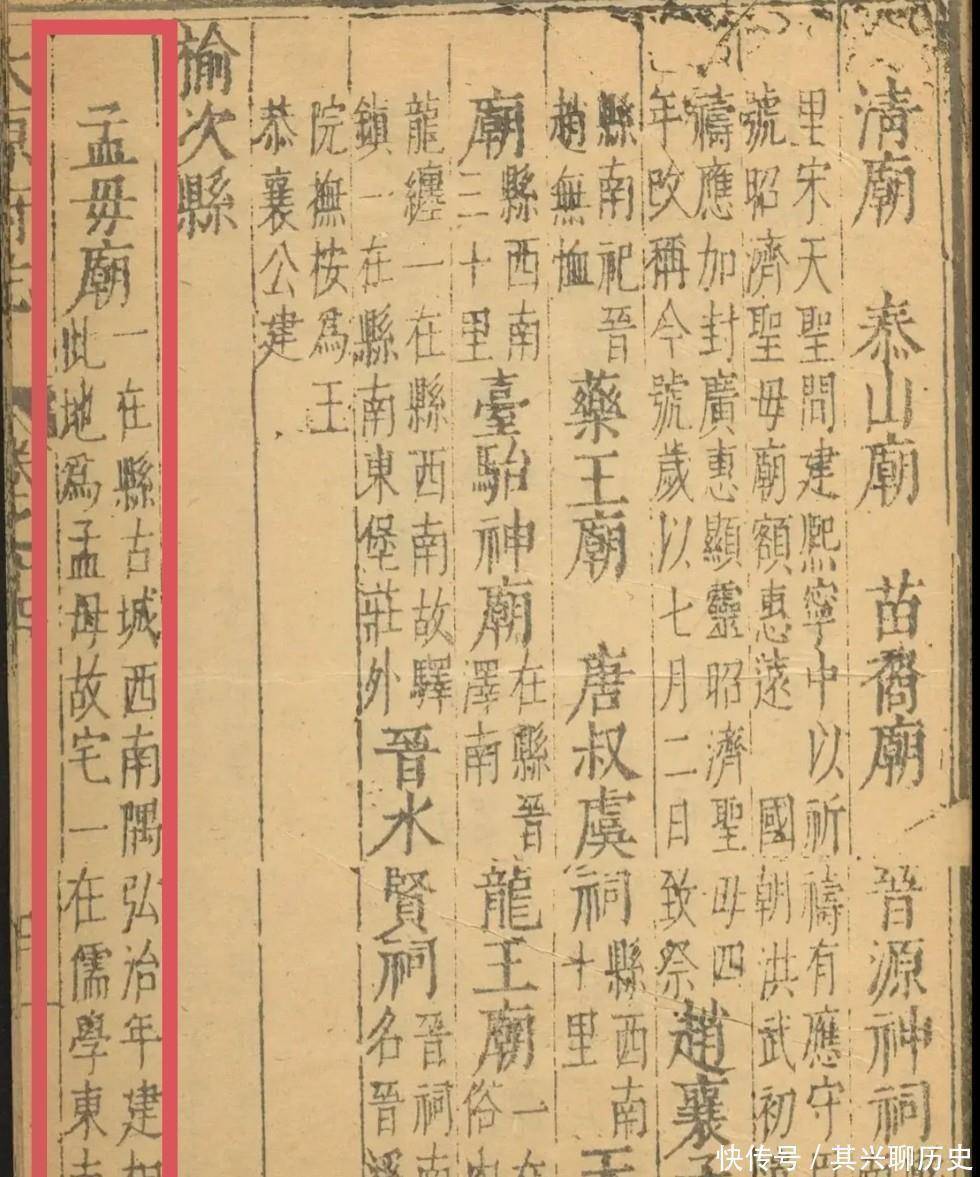 清廟 泰山廟 苗裔廟 晉源神祠
里宋天聖間建熙寧中以祈禱有應守
號昭濟聖母廟額惠遠 國朝洪武初
禱應加封廣惠顯靈昭濟聖母四
年改稱今號歲以七月二日致祭 趙襄
縣南祀晉
趙無恤 藥王廟 唐叔虞祠 縣西南
十里 王
廟 縣西南
三十里 臺駘神廟 在縣晉
澤南 龍王廟 一在
俗
龍纏一在縣西南故驛
鎮一在縣南東堡莊外 晉水賢祠 晉祠南
名晉溪
院撫按為王
恭襄公建
榆次縣
孟母廟 一在縣古城西南隅弘治年建
此地為孟母故宅一在儒學東
太原府志
快传号 / 其兴聊历史